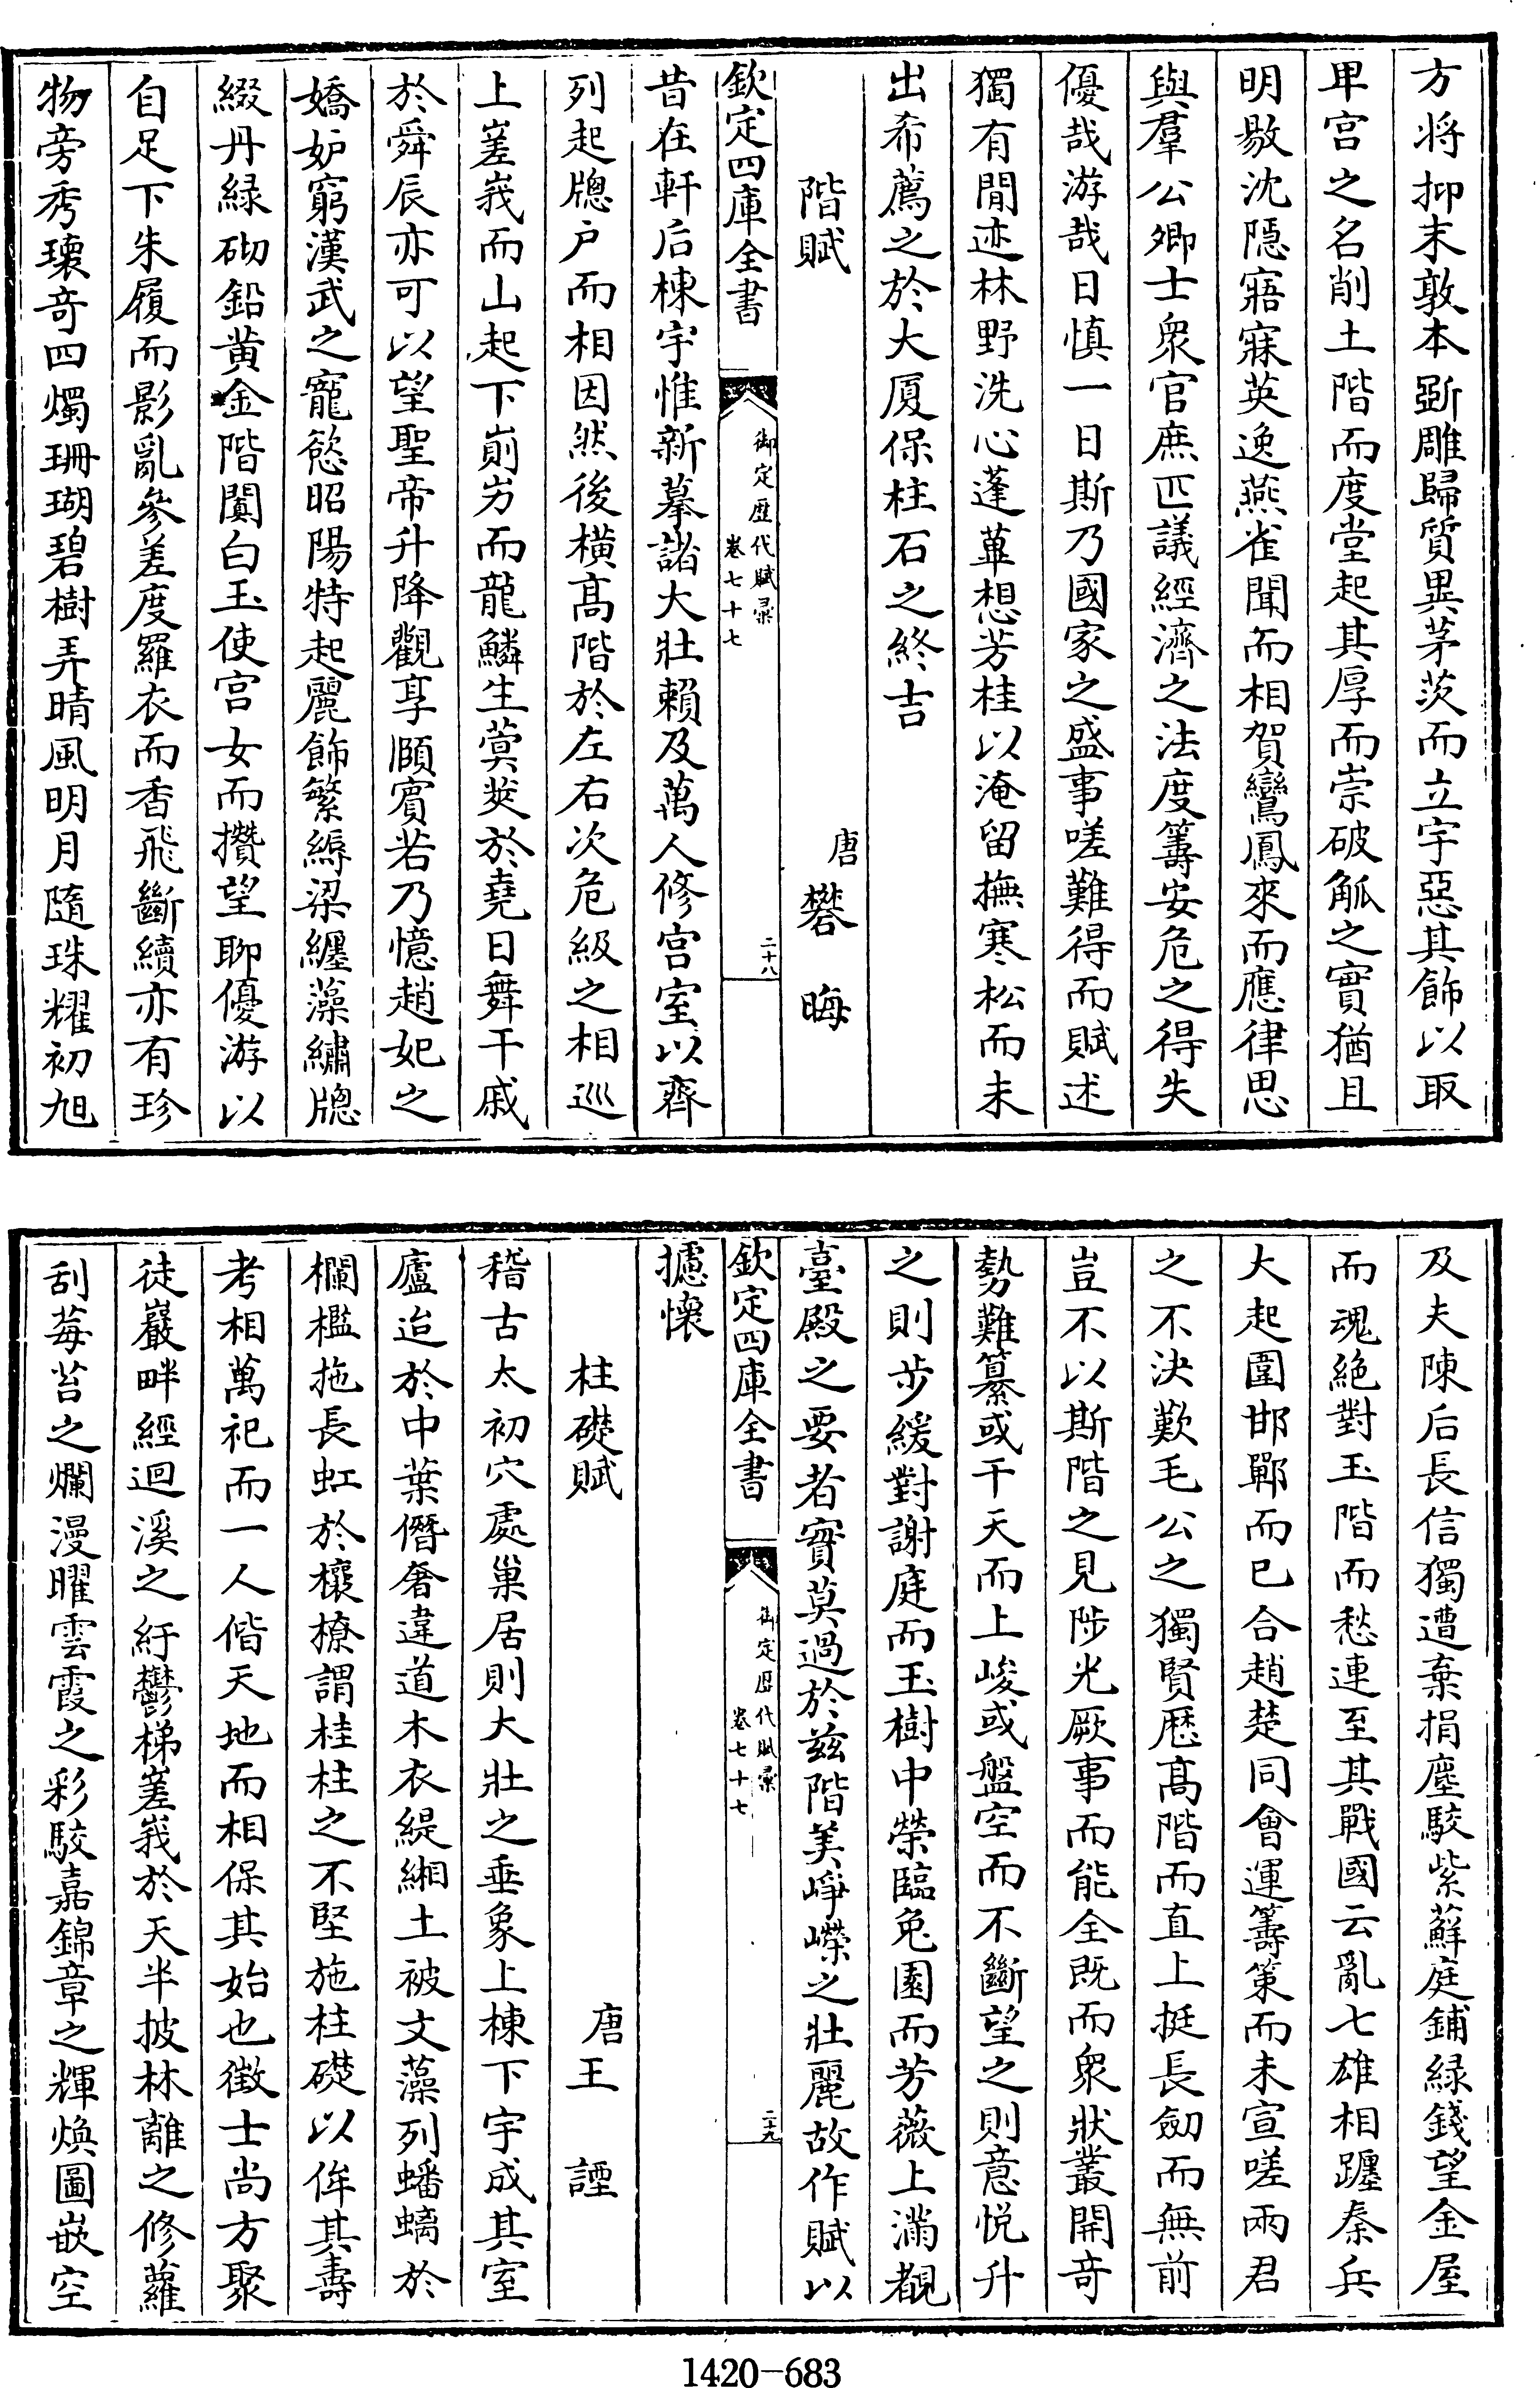 方將抑末敦本斲雕歸質異茅茨而立宇惡其飾以取
卑宫之名削土階而度堂起其厚而崇破觚之實猶且
明敭沈隱寤寐英逸燕雀聞而相賀鸞鳳來而應律思
與羣公卿士衆官庶匹議經濟之法度籌安危之得失
優哉游哉日慎一日斯乃國家之盛事嗟難得而賦述
獨有閒迹林野洗心蓬蓽想芳桂以淹留撫寒松而未
出希薦之於大厦保柱石之終吉
階賦
唐 樊 晦
欽定四庫全書
御定歴代賦彚
卷七十七
二十八
昔在軒后棟宇惟新摹諸大壯賴及萬人修宫室以齊
列起牕戸而相因然後横髙階於左右次危級之相巡
上嵳峩而山起下崱屴而龍鱗生蓂莢於堯日舞干戚
於舜辰亦可以望聖帝升降觀享頫賔若乃憶趙妃之
嬌妒窮漢武之寵慾昭陽特起麗飾繁縟梁纒藻繡牕
綴丹緑砌鉛黄金階闐白玉使宫女而攢望聊優游以
自足下朱履而影亂參差度羅衣而香飛斷續亦有珍
物旁秀瓌竒四燭珊瑚碧樹弄晴風明月隨珠耀初旭
及夫陳后長信獨遭棄捐塵駮紫蘚庭鋪緑錢望金屋
而魂絶對玉階而愁連至其戰國云亂七雄相躔秦兵
大起圍邯鄲而已合趙楚同會運籌策而未宣嗟兩君
之不決歎毛公之獨賢歴髙階而直上挺長劒而無前
豈不以斯階之見陟光厥事而能全既而衆狀叢開竒
勢難纂或干天而上峻或盤空而不斷望之則意悦升
之則步緩對謝庭而玉樹中榮臨兎園而芳薇上滿覩
臺殿之要者實莫過於兹階美崢嶸之壯麗故作賦以
攄懷
欽定四庫全書
御定歴代賦彚
卷七十七
二十九
柱礎賦
唐 王 諲
稽古太初穴處巢居則大壯之垂象上棟下宇成其室
廬迨於中葉僭奢違道木衣緹緗土被文藻列蟠螭於
欄檻拖長虹於欀橑謂桂柱之不堅施柱礎以侔其夀
考相萬祀而一人偕天地而相保其始也徴士尚方聚
徒巖畔經迴溪之紆鬱梯嵳峩於天半披林離之修蘿
刮莓苔之爛漫曜雲霞之彩駮嘉錦章之輝煥圖嵌空
1420-683